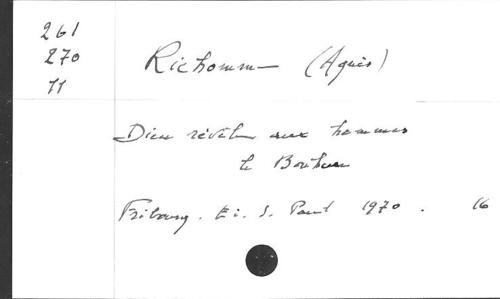 261
270
11
Richomme (Agnès)
Dieu révèle aux hommes
le Bonheur
Fribourg. Ed. S. Paul 1970. 16